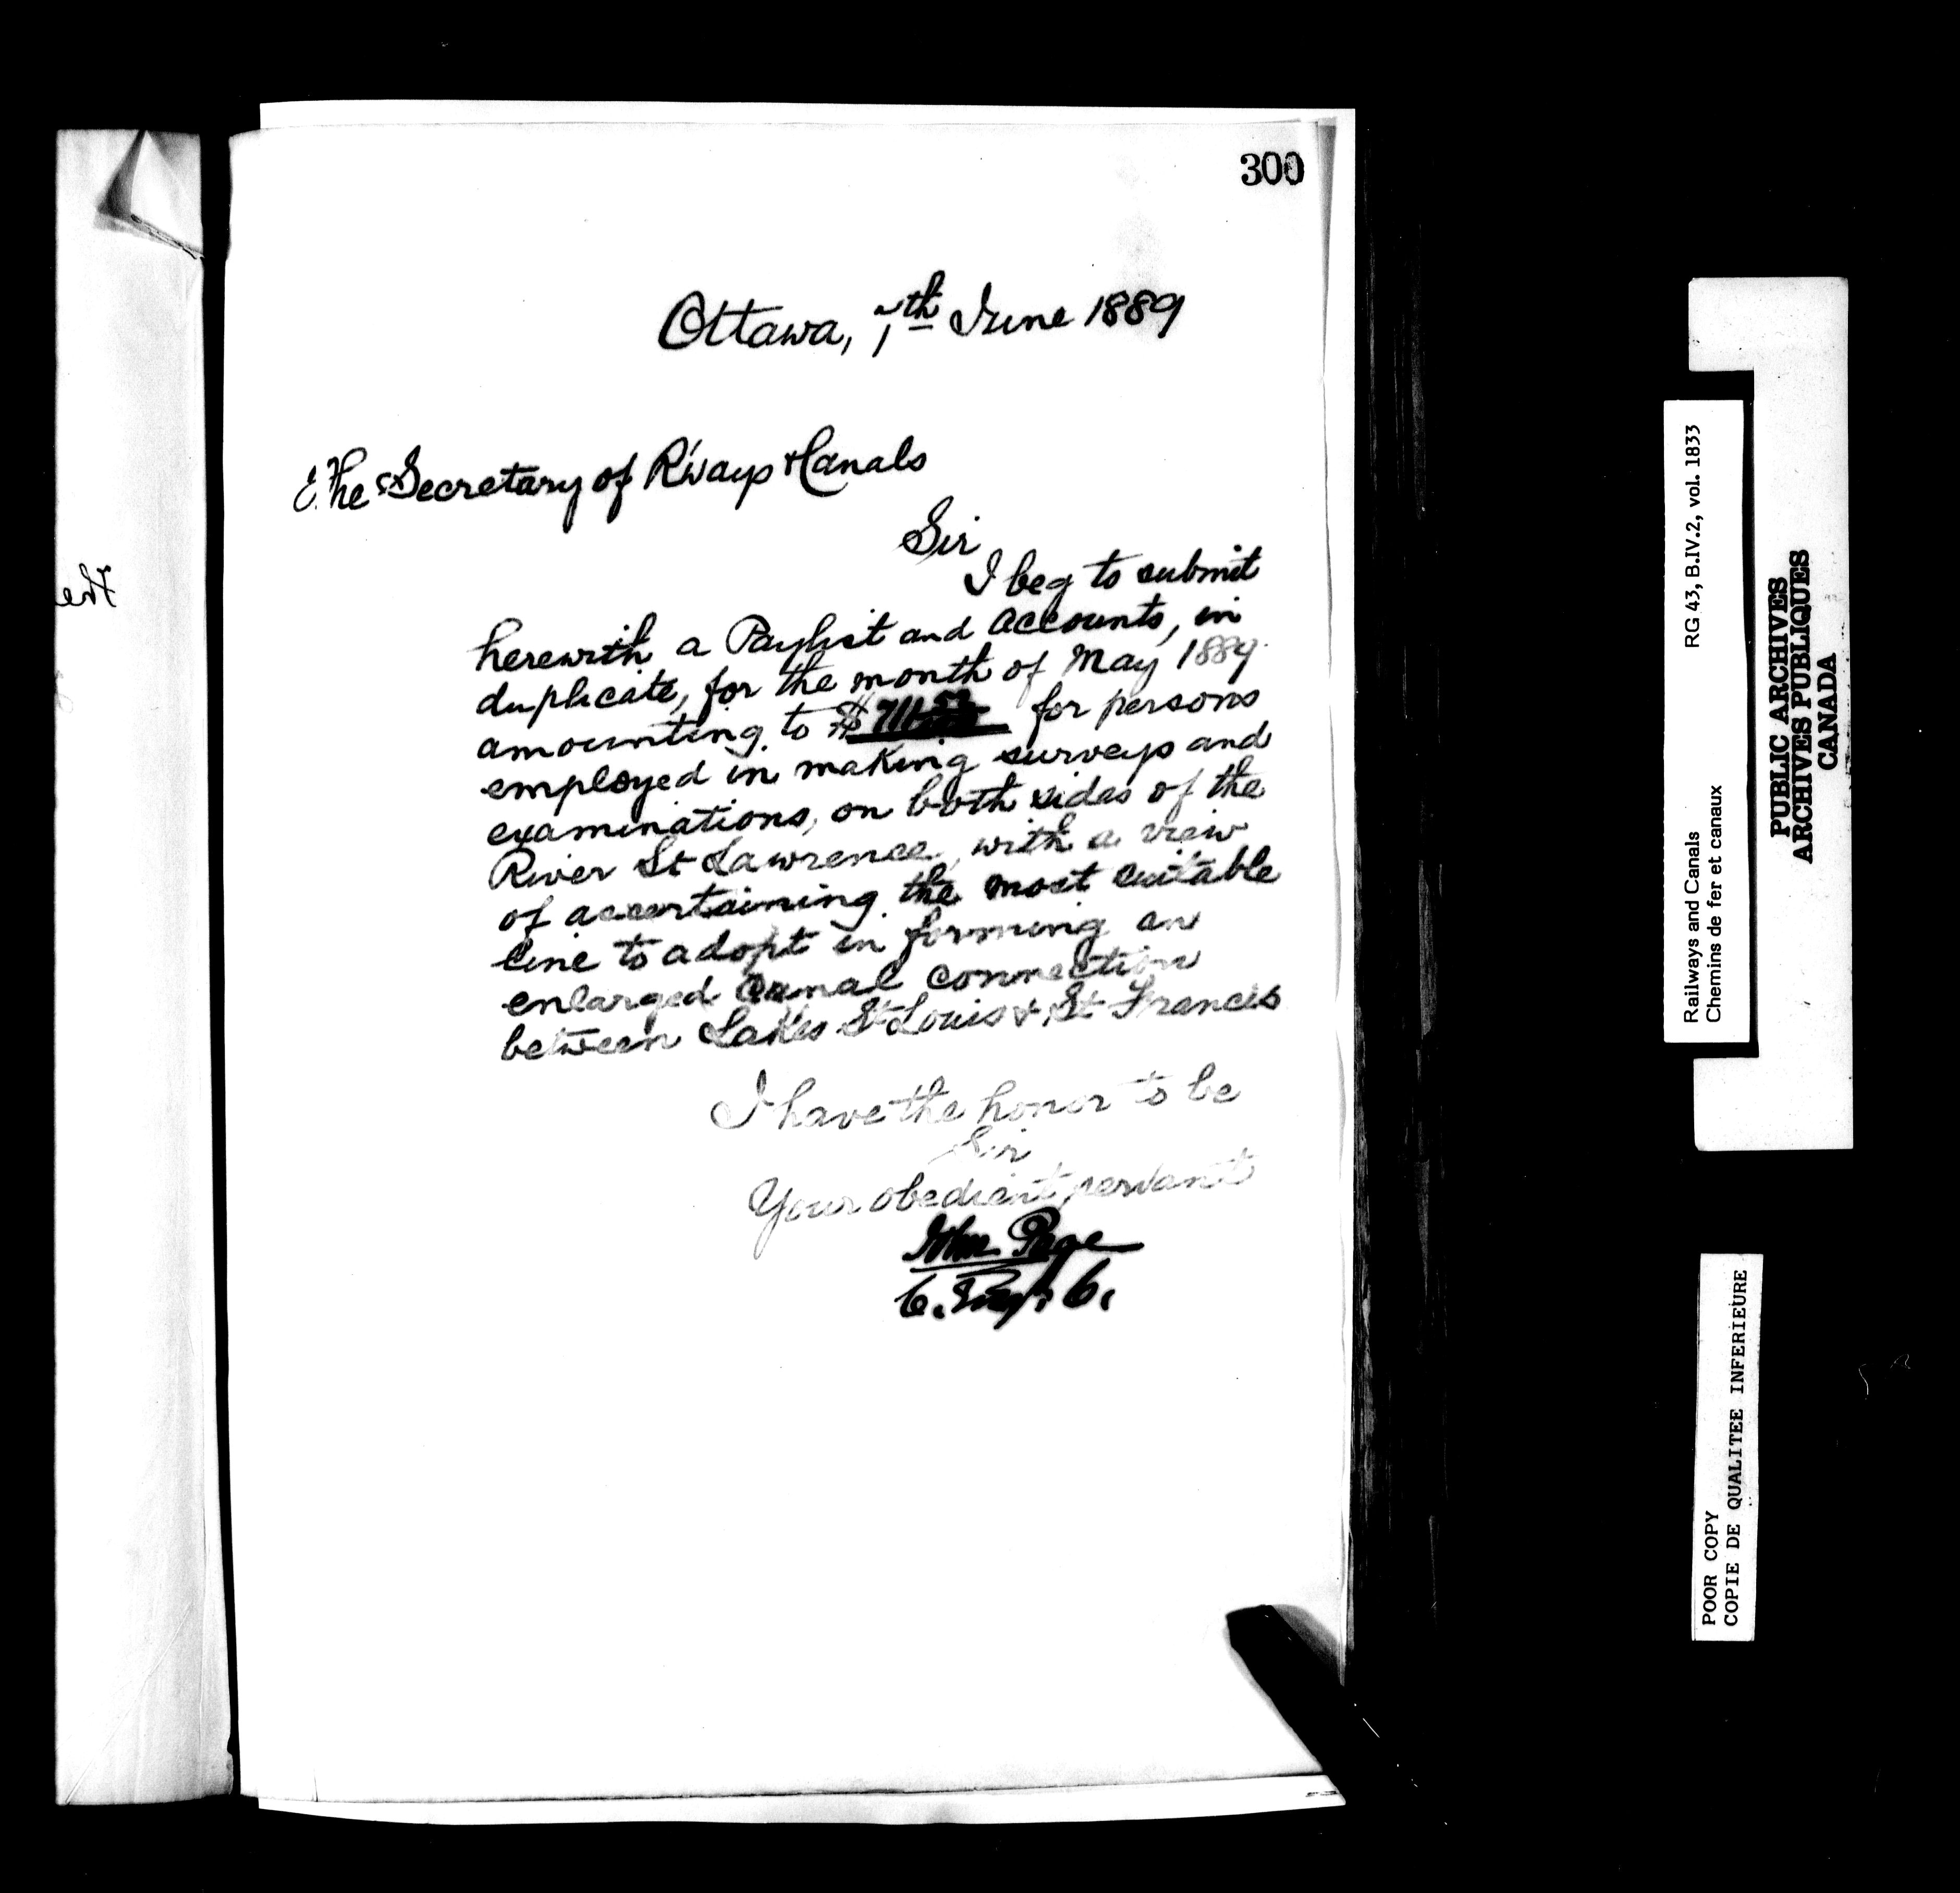 300
Ottawa, 7th June 1889
The Secretary of R'ways & Canals
Sir
I beg to submit
herewith a Paylist and Accounts, in
duplicate, for the month of May 1889
amounting to $ for persons
employed in making surveys and
examinations, on both sides of the
River St Lawrence, with a view
of ascertaining the most suitable
line to adopt in forming an
enlarged canal connection
between Lakes St Louis & St Francis
I have the honor to be
Sir
Your obedient servant
John Page
C. Eng. C.
RG 43, B.IV.2, vol. 1833
Railways and Canals
Chemins de fer et canaux
PUBLIC ARCHIVES
ARCHIVES PUBLIQUES
CANADA
POOR COPY
COPIE DE QUALITEE INFERIEURE